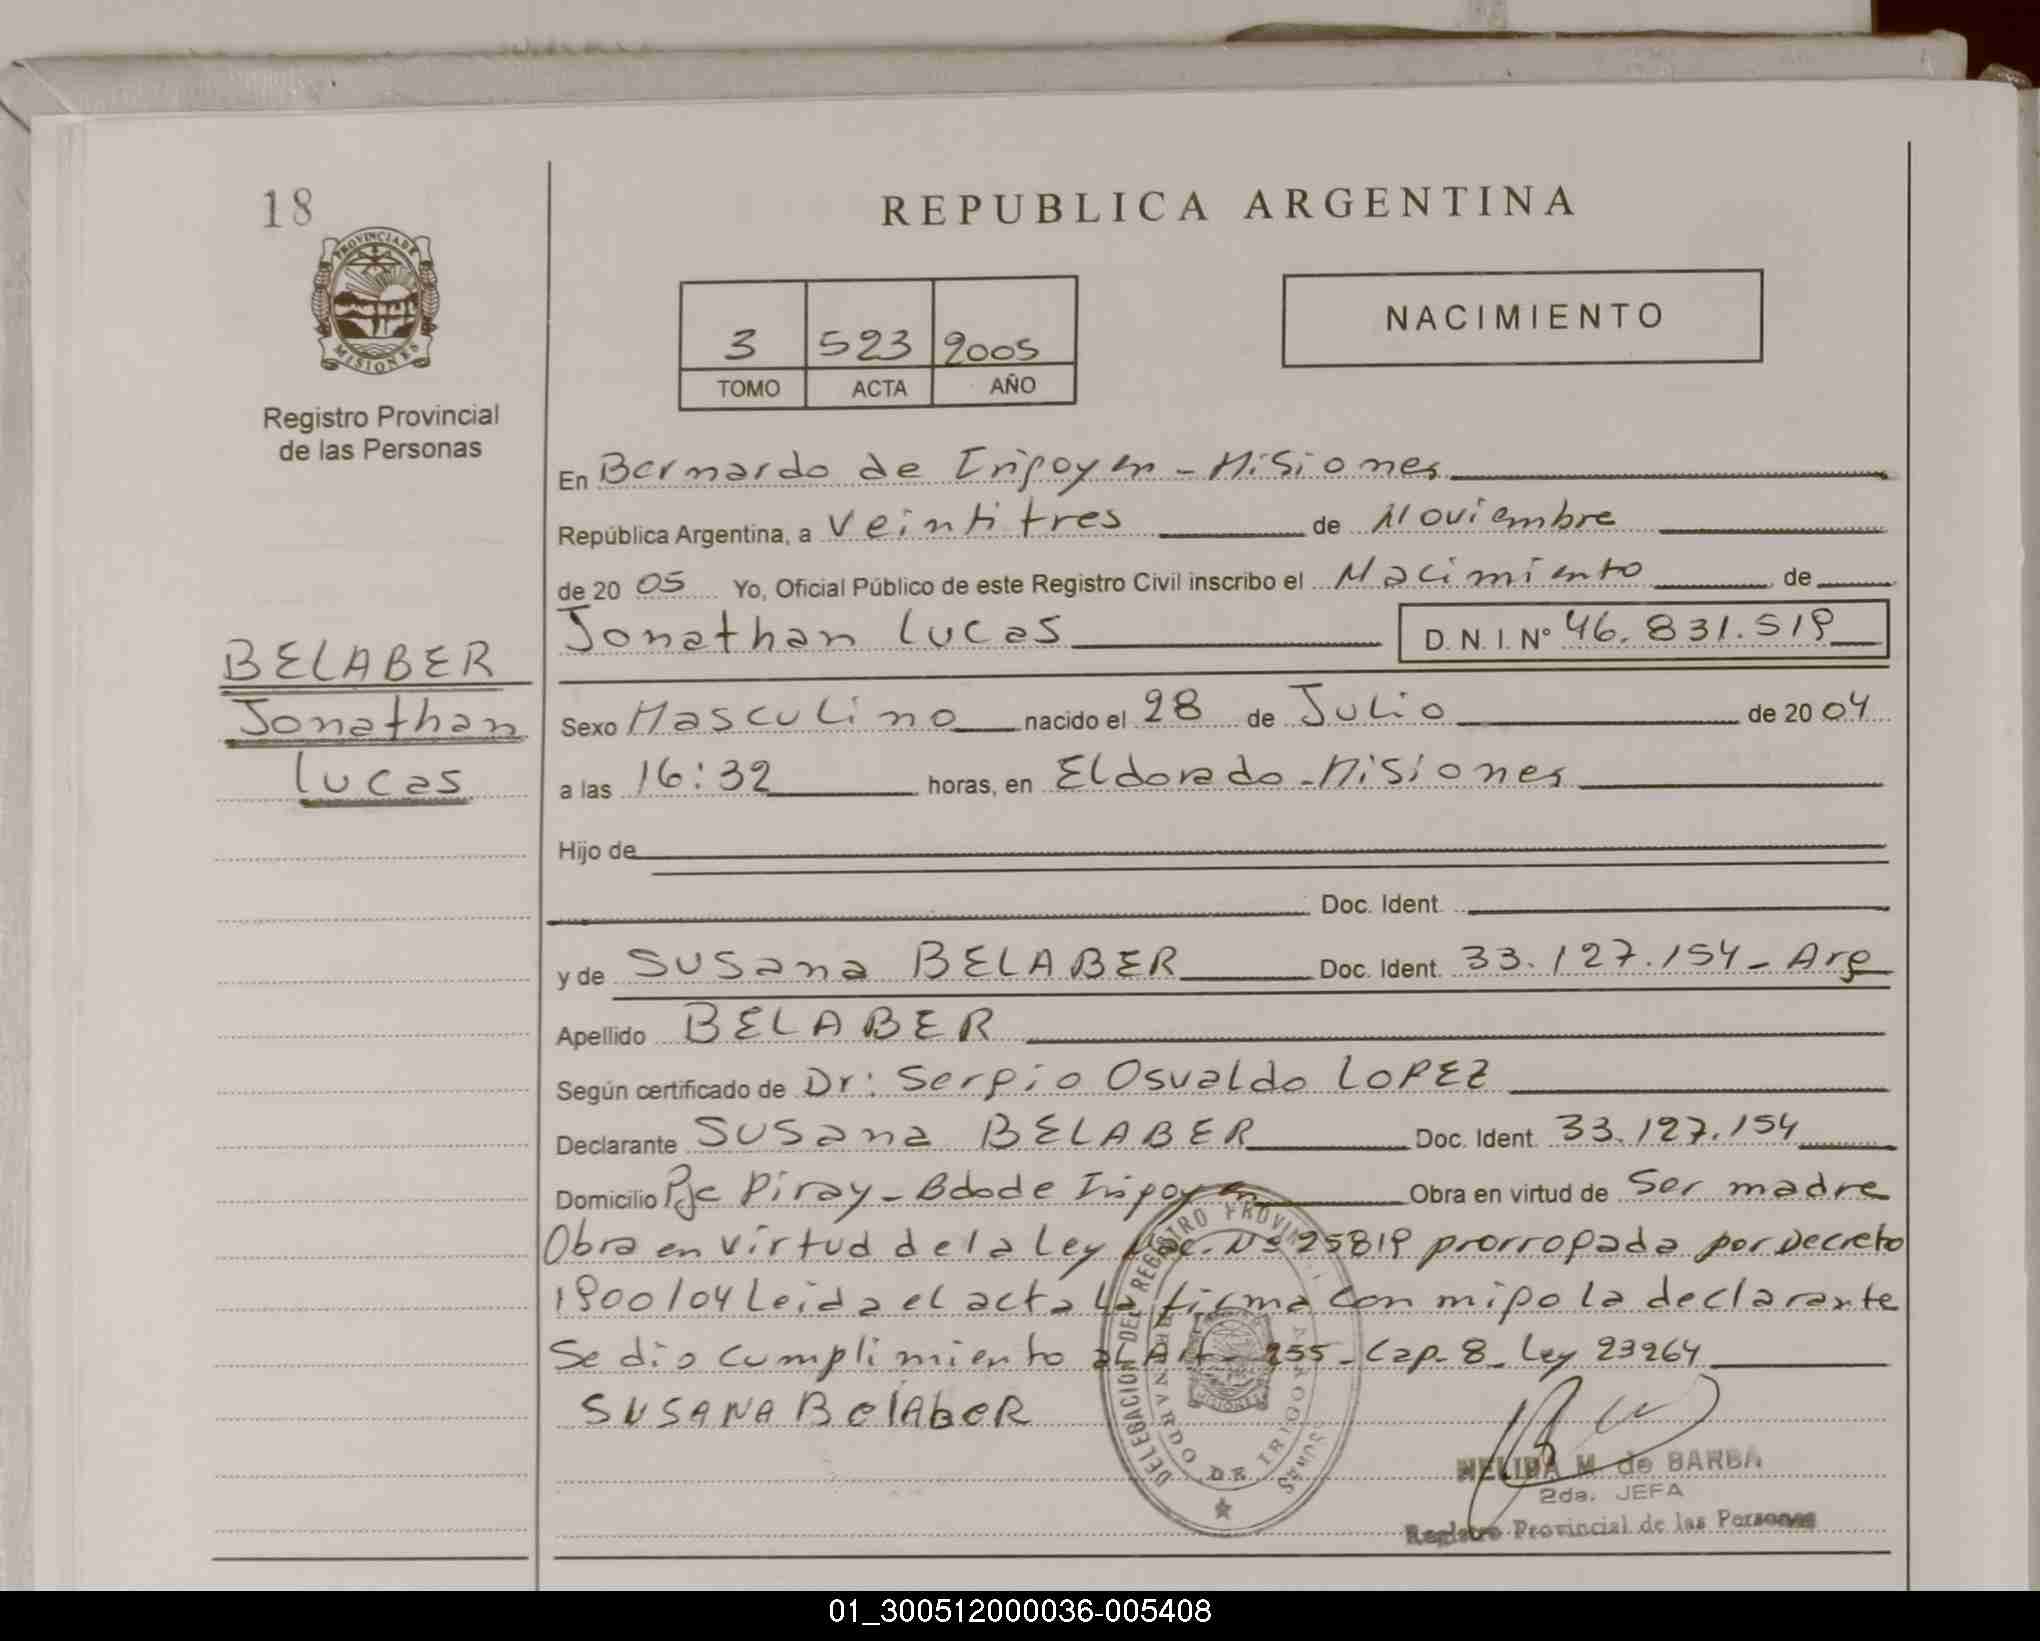 18
REPUBLICA ARGENTINA
PROVINCIA DE
MISIONES
Registro Provincial
de las Personas
3 523 2005
TOMO ACTA AÑO
NACIMIENTO
En Bernardo de Irigoyen - Misiones
República Argentina, a Veintitres de Noviembre
de 20 05 Yo, Oficial Público de este Registro Civil inscribo el Nacimiento de
Jonathan Lucas D. N. I. Nº 46.831.519
BELABER
Jonathan
Lucas
Sexo Masculino nacido el 28 de Julio de 20 04
a las 16:32 horas, en Eldorado - Misiones
Hijo de
Doc. Ident.
y de Susana BELABER Doc. Ident. 33.127.154 - Arg
Apellido BELABER
Según certificado de Dr: Sergio Osvaldo LOPEZ
Declarante Susana BELABER Doc. Ident. 33.127.154
Domicilio Pje Piray - Bdo de Irigoyen Obra en virtud de Ser madre
Obra en virtud de la Ley Nac. Nº 25819 prorrogada por Decreto
1900/04 Leida el acta la firma con migo la declarante
Se dio cumplimiento al Art - 255 - Cap - 8 - Ley 23264
SUSANA BelAbeR
DELEGACION DEL REGISTRO PROVINCIAL
BERNARDO DE IRIGOYEN
MISIONES
NELIDA M. de BARBA
2da. JEFA
Registro Provincial de las Personas
01_300512000036-005408